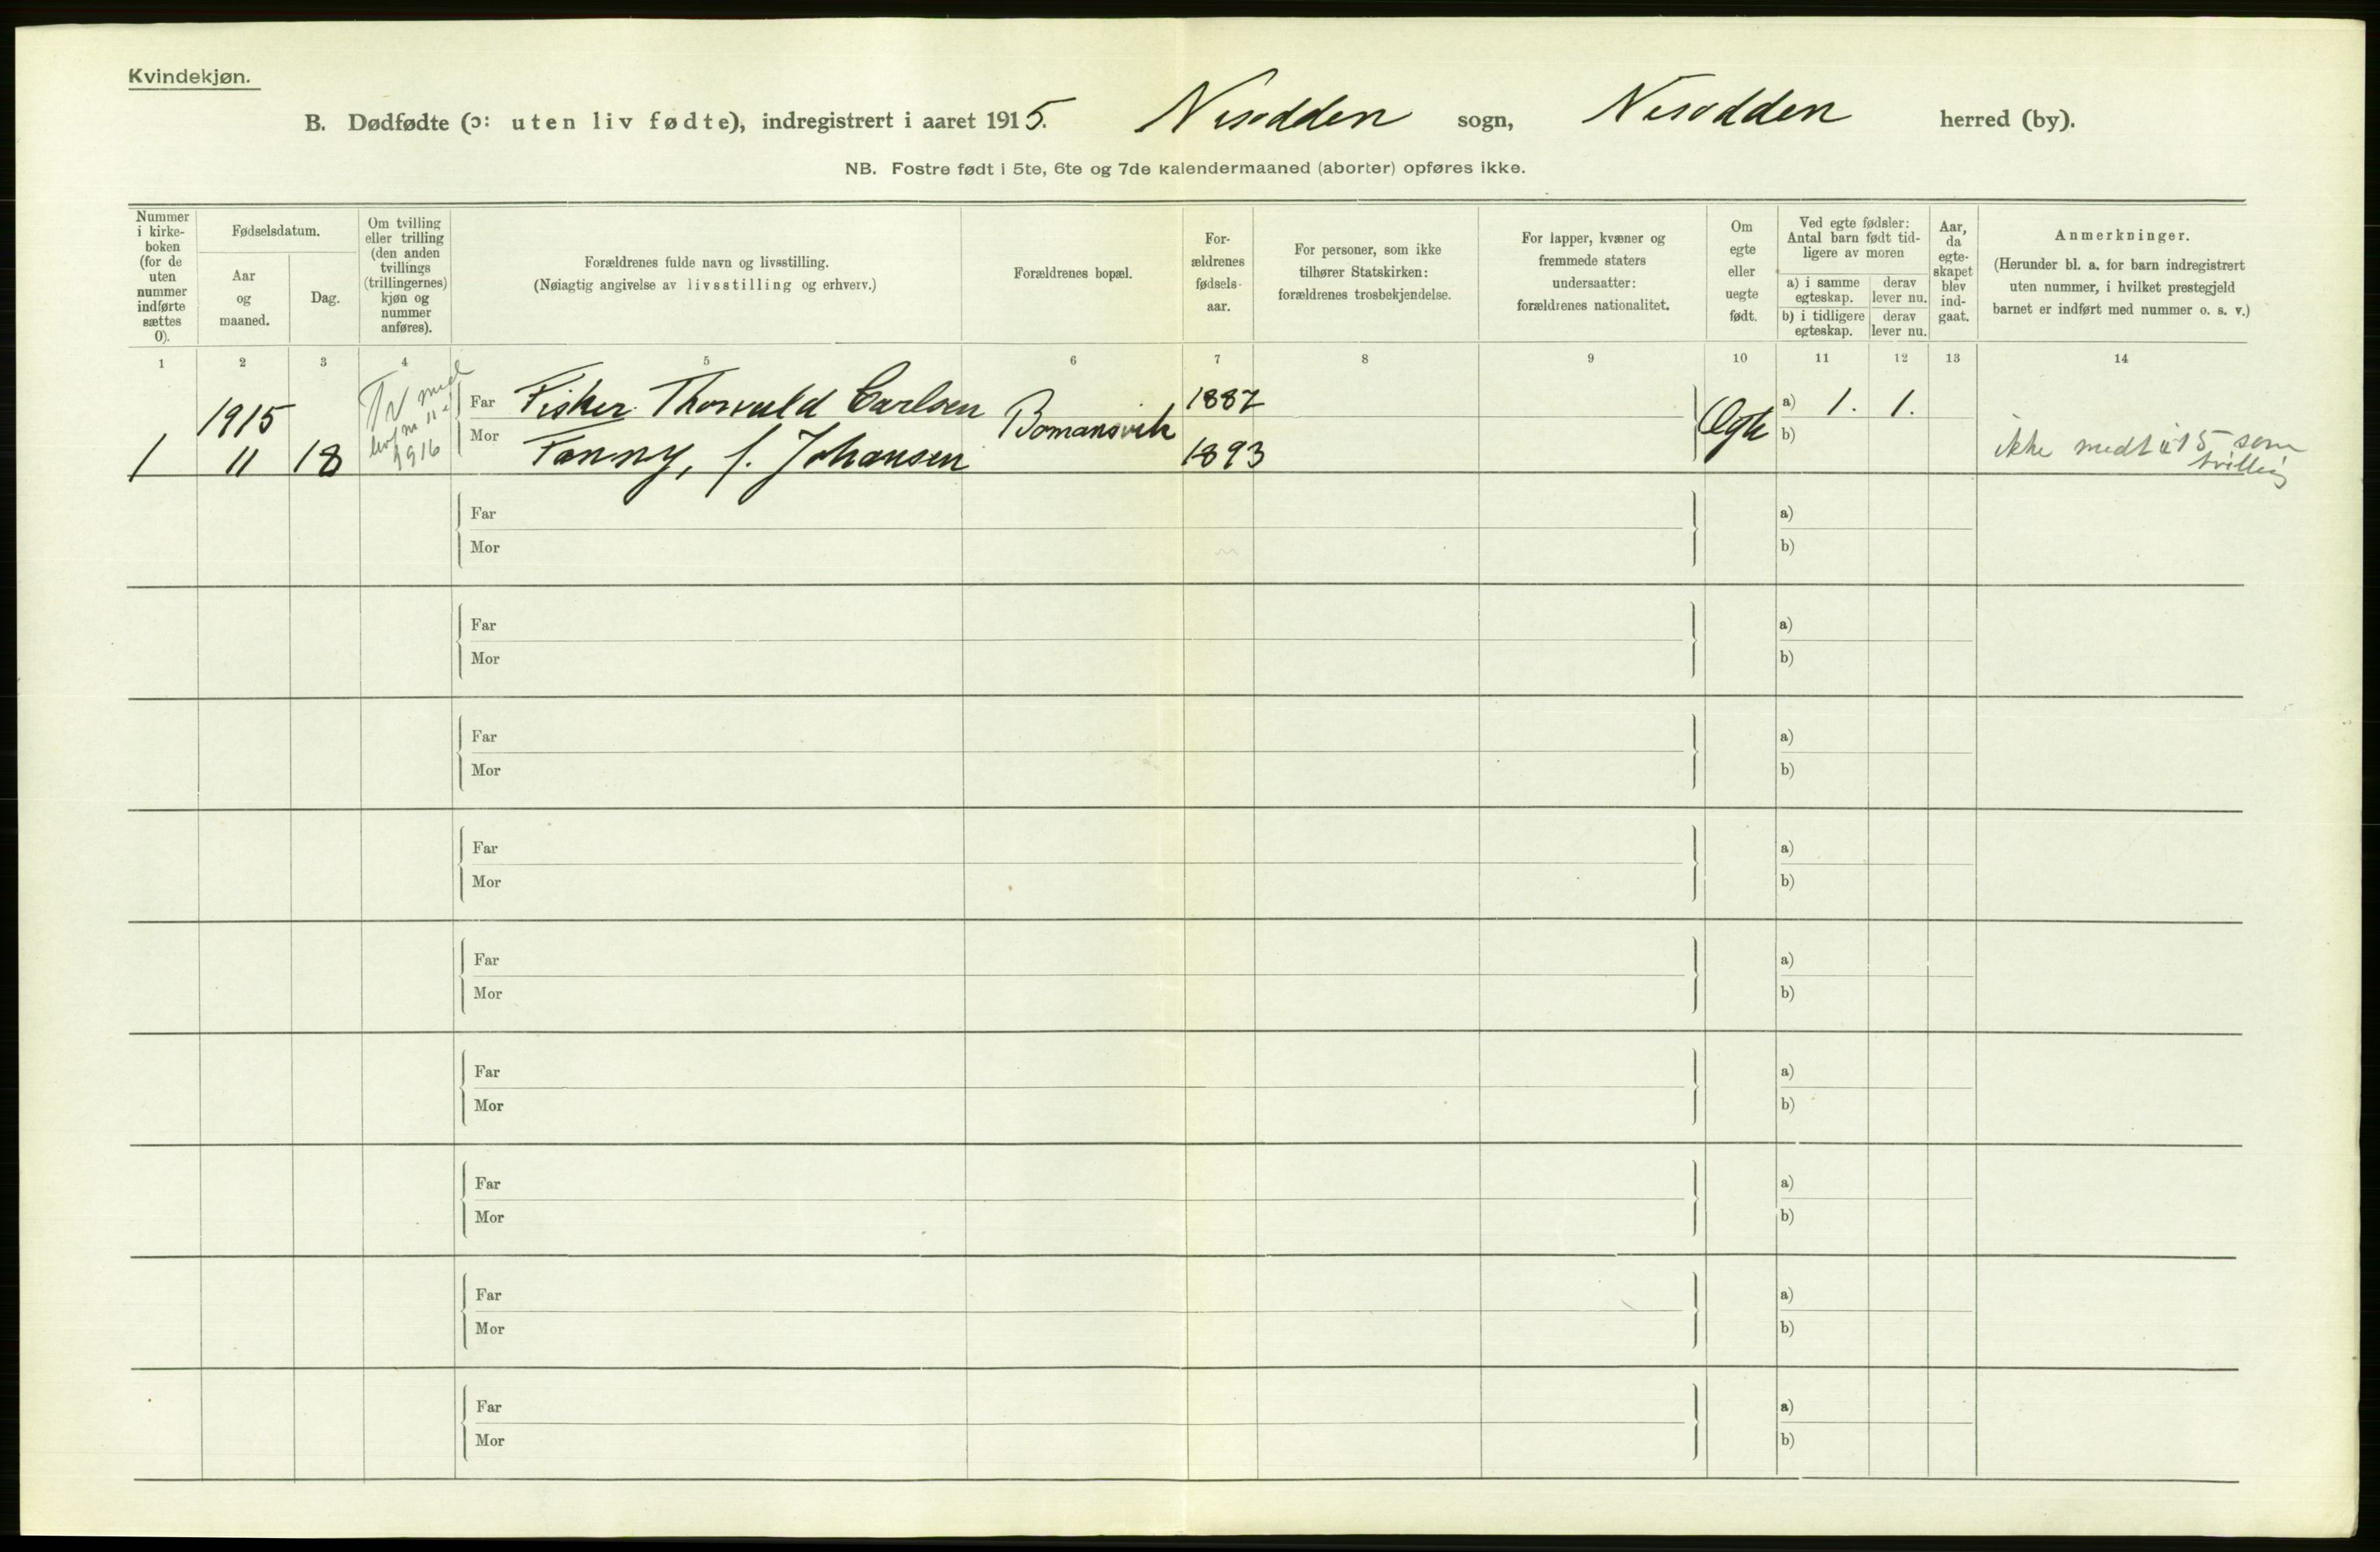 Kvindekjøn.
B. Dødfødte (ɔ: uten liv fødte), indregistrert i aaret 1915. Nesodden sogn, Nesodden herred (by).
NB. Fostre født i 5te, 6te og 7de kalendermaaned (aborter) opføres ikke.
Nummer i kirke-boken (for de uten nummer indførte sættes 0).
Fødselsdatum.
Aar og maaned.
Dag.
Om tvilling eller trilling (den anden tvillings (trillingernes) kjøn og nummer anføres).
Forældrenes fulde navn og livsstilling.
(Nøiagtig angivelse av livsstilling og erhverv.)
Forældrenes bopæl.
For-ældrenes fødsels-aar.
For personer, som ikke tilhører Statskirken: forældrenes trosbekjendelse.
For lapper, kvæner og fremmede staters undersaatter: forældrenes nationalitet.
Om egte eller uegte født.
Ved egte fødsler: Antal barn født tid-ligere av moren
a) i samme egteskap.
derav lever nu.
b) i tidligere egteskap.
derav lever nu.
Aar, da egte-skapet blev ind-gaat.
Anmerkninger.
(Herunder bl. a. for barn indregistrert uten nummer, i hvilket prestegjeld barnet er indført med nummer o. s. v.)
1 2 3 4 5 6 7 8 9 10 11 12 13 14
1 1915 11 18
Tv med
lev nr 11
1916
Far Fisker Thorvald Carlsen
Mor Fanny, f. Johansen
Bomansvik
1887
1893
Egte
a) 1. 1.
b)
ikke medt i 15 som
tvilling
Far a)
Mor b)
Far a)
Mor b)
Far a)
Mor b)
Far a)
Mor b)
Far a)
Mor b)
Far a)
Mor b)
Far a)
Mor b)
Far a)
Mor b)
Far a)
Mor b)